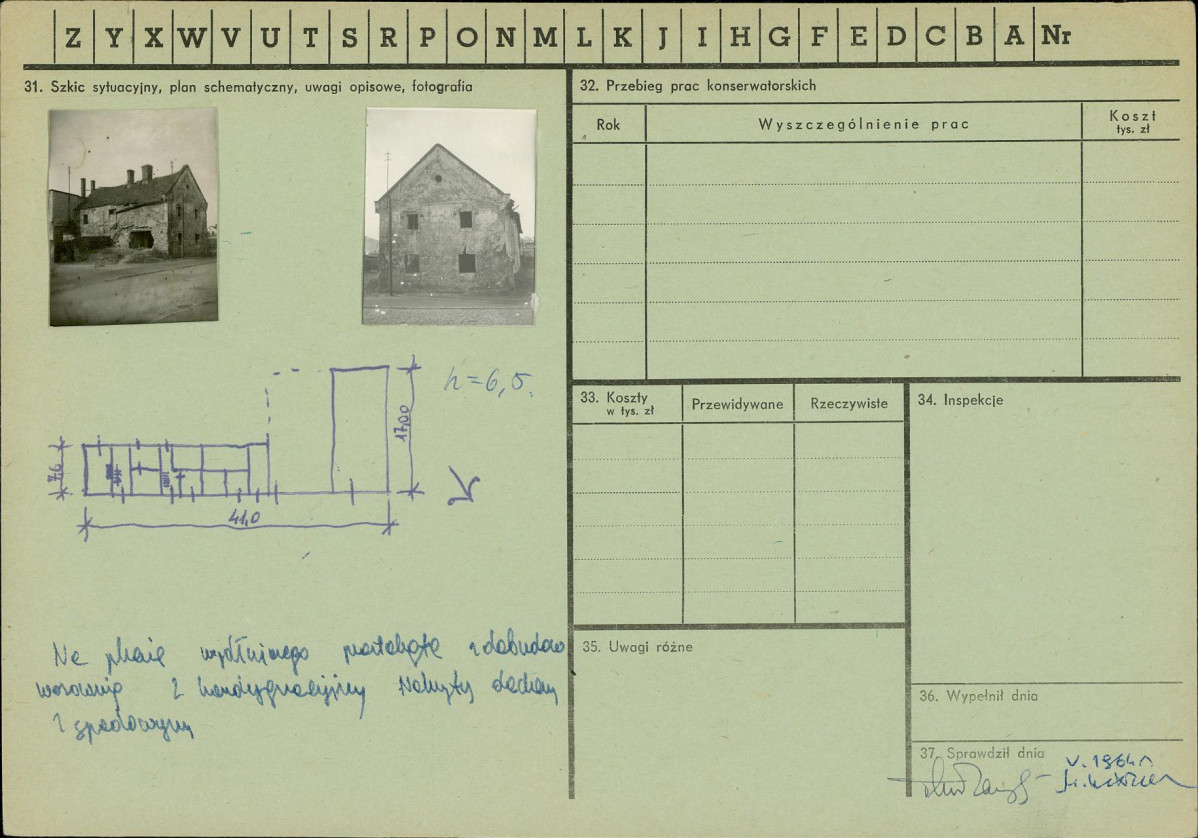 Z Y X W V U T S R P O N M L K J I H G F E D C B A Nr
31. Szkic sytuacyjny, plan schematyczny, uwagi opisowe, fotografia
h=6,5.
17,00
7,6
41,0
Na planie wydłużonego prostokąta z dobudow
2 kondygnacyjny Nakryty dachem
2 spadowym
32. Przebieg prac konserwatorskich
Rok
Wyszczególnienie prac
Koszt
tys. zł
33. Koszty
w tys. zł
Przewidywane
Rzeczywiste
34. Inspekcje
35. Uwagi różne
36. Wypełnił dnia
37. Sprawdził dnia
V. 1964 r